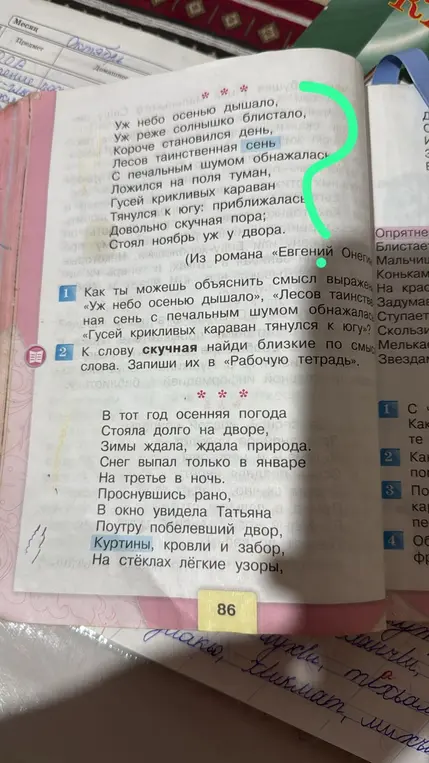 Месяц
Октябрь
Предмет
* * *
Уж небо осенью дышало,
Уж реже солнышко блистало,
Короче становился день,
Лесов таинственная сень
С печальным шумом обнажалась
Ложился на поля туман,
Гусей крикливых караван
Тянулся к югу: приближалась
Довольно скучная пора;
Стоял ноябрь уж у двора.
(Из романа «Евгений Онеги
1 Как ты можешь объяснить смысл выражен
«Уж небо осенью дышало», «Лесов таинстве
ная сень с печальным шумом обнажалас
«Гусей крикливых караван тянулся к югу»?
2 К слову скучная найди близкие по смыс
слова. Запиши их в «Рабочую тетрадь».
* * *
В тот год осенняя погода
Стояла долго на дворе,
Зимы ждала, ждала природа.
Снег выпал только в январе
На третье в ночь.
Проснувшись рано,
В окно увидела Татьяна
Поутру побелевший двор,
Куртины, кровли и забор,
На стёклах лёгкие узоры,
86
Опрятне
Блистает
Мальчиш
Коньками
На крас
Задумав
Ступает
Скользи
Мелькае
Звездам
1 С ч
Как
те
2 Ка
по
3 По
кар
пе
4 Об
фр